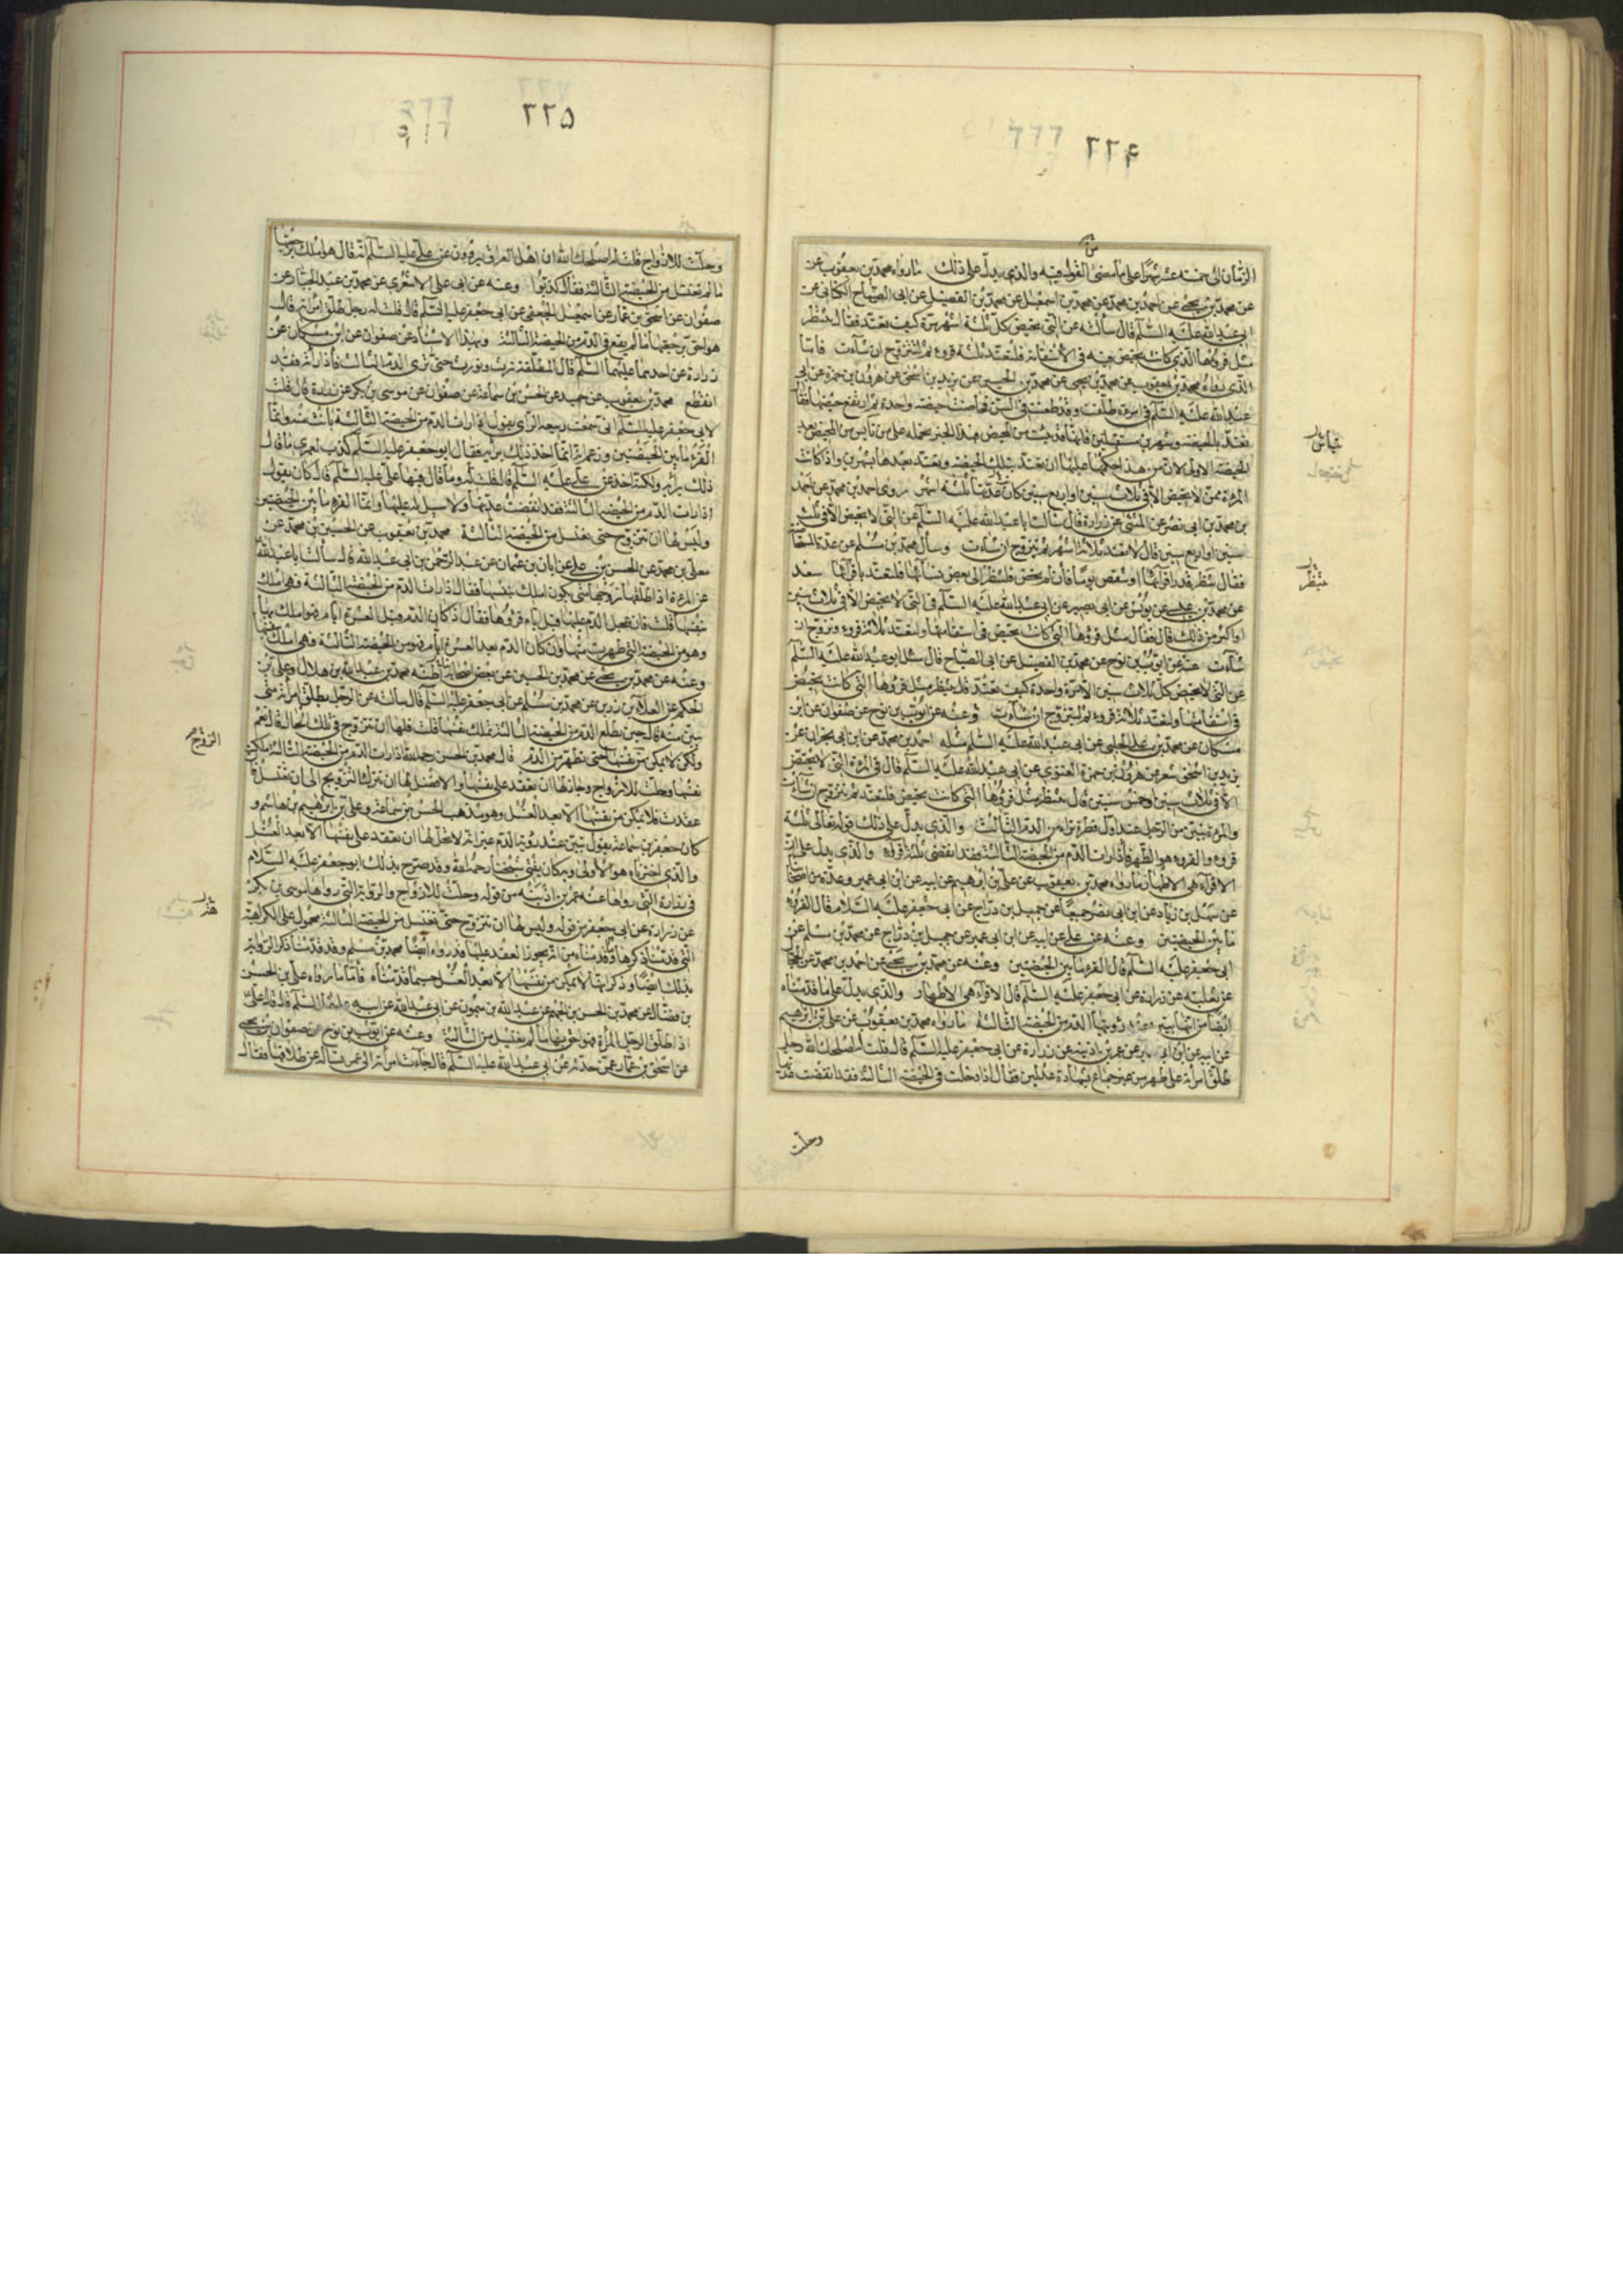 الزمان الى خمسة عشر شهرا على ما مضى القول فيه والذى يدل على ذلك ما رواه محمد بن يعقوب عن
عن محمد بن يحيى عن احمد بن محمد عن محمد بن اسمعيل عن محمد بن الفضيل عن ابى الصباح الكنانى عن
ابى عبد الله عليه السلم قال سألته عن التى تحيض كل ثلثة اشهر مرة كيف تعتد فقال تنتظر
مثل قروءها الذى كانت تحيض فيه فى الاستقامة فلتعتد ثلثة قروء ثم لتتزوج ان شاءت فاما
الذى رواه محمد بن يعقوب عن محمد بن يحيى عن محمد بن الحسين عن يزيد بن اسحق عن هرون بن حمزة عن ابى
عبد الله عليه السلم فى امرءة طلقت وقد طعنت فى السن فحاضت حيضة واحدة ثم ارتفع حيضها فقال
تعتد بالحيضة وشهرين مستقبلين فانها قد يئست من المحيض فهذا الخبر نحمله على من تايس من المحيض بعد
الحيضة الاولى لان من هذا حكمها عليها ان تعتد بتلك الحيضة وتعتد بعدها بشهرين واذا كانت
المرءة ممن لا تحيض الا فى ثلاث سنين او اربع سنين كان عدتها ثلثة اشهر روى احمد بن محمد عن احمد
بن محمد بن ابى نصر عن المثنى عن زرارة قال سالت ابا عبد الله عليه السلم عن التى لا تحيض الا فى ثلث
سنين او اربع سنين قال تعتد بثلاثة اشهر ثم تتزوج ان شاءت وسأل محمد بن مسلم عن عدة المستحاضة
فقال تنتظر قدر اقرائها او تنقص يوما فان لم تحض فلتنظر الى بعض نسائها فلتعتد باقرائها سعد
عن محمد بن عيسى عن يونس عن ابى بصير عن ابى عبد الله عليه السلم فى التى لا تحيض الا فى ثلاث سنين
او اكثر من ذلك قال فقال مثل قروءها التى كانت تحيض فى استقامتها ولتعتد ثلاثة قروء وتزوج ان
شاءت عنه عن ايوب بن نوح عن محمد بن الفضيل عن ابى الصباح قال سئل ابو عبد الله عليه السلم
عن التى لا تحيض كل ثلاث سنين الا مرة واحدة كيف تعتد قال تنتظر مثل قروءها التى كانت تحيض
فى استقامتها ولتعتد ثلاثة قروء ثم لتتزوج ان شاءت وعنه عن ايوب بن نوح عن صفوان عن ابن
مسكان عن محمد بن على الحلبى عن ابى عبد الله عليه السلم مثله احمد بن محمد عن ابن ابى نجران عن
يزيد بن اسحق شعر عن هرون بن حمزة الغنوى عن ابى عبد الله عليه السلم قال فى المرءة التى لا تحيض
الا فى ثلاث سنين او خمس سنين قال تنتظر مثل قروءها التى كانت تحيض فلتعتد ثم تتزوج ان شاءت
والمرءة تبين من الرجل عند اول قطرة تراه من الدم الثالث والذى يدل على ذلك قوله تعالى ثلثة
قروء والقروء هو الطهر فاذا رات الدم من الحيضة الثالثة فقد انقضى ثلثة اقراء والذى يدل على ان
الاقراء هى الاطهار ما رواه محمد بن يعقوب عن على بن ابرهيم عن ابيه عن ابن ابى عمير وعدة من اصحابنا
عن سهل بن زياد عن ابن ابى نصر جميعا عن جميل بن دراج عن ابى جعفر عليه السلام قال القروء
ما بين الحيضتين وعنه عن على عن ابيه عن ابن ابى عمير عن جميل بن دراج عن محمد بن مسلم عن
ابى جعفر عليه السلم قال القرء ما بين الحيضتين وعنه عن محمد بن يحيى عن احمد بن محمد عن الحجال
عن ثعلبة عن زرارة عن ابى جعفر عليه السلم قال الاقراء هى الاطهار والذى يدل على ما قدمناه
انفا من انها تبين عند رؤيتها الدم من الحيضة الثالثة ما رواه محمد بن يعقوب عن على بن ابرهيم
عن ابيه عن ابن ابى عمير عن عمر بن اذينة عن زرارة عن ابى جعفر عليه السلم قال قلت له اصلحك الله رجل
طلق امرأته على طهر من غير جماع بشهادة عدلين فقال اذا دخلت فى الحيضة الثالثة فقد انقضت عدتها
وحلت
٢٢٥
وحلت للازواج قلت له اصلحك الله ان اهل العراق يروون عن على عليه السلم انه قال هو املك برجعتها
ما لم تغتسل من الحيضة الثالثة فقال كذبوا وعنه عن ابى على الاشعرى عن محمد بن عبد الجبار عن
صفوان عن اسحق بن عمار عن اسمعيل الجعفى عن ابى جعفر عليه السلم قال قلت له رجل طلق امرأته قال
هو احق برجعتها ما لم يقع فى الدم من الحيضة الثالثة وبهذا الاسناد عن صفوان عن ابن مسكان عن
زرارة عن احدهما عليهما السلم قال المطلقة ترث وتورث حتى ترى الدم الثالث فاذا رأته فقد
انقطع محمد بن يعقوب عن حميد عن الحسن بن سماعة عن صفوان عن موسى بن بكر عن زرارة قال قلت
لابى جعفر عليه السلم انى سمعت ربيعة الرأى يقول اذا رات الدم من الحيضة الثالثة بانت منه وانما
القرء ما بين الحيضتين وزعم انه انما اخذ ذلك برأيه فقال ابو جعفر عليه السلم كذب لعمرى ما قال
ذلك برأيه ولكنه اخذه عن على عليه السلم قال قلت له وما قال فيها على عليه السلم قال كان يقول
اذا رات الدم من الحيضة الثالثة فقد انقضت عدتها ولا سبيل له عليها وانما القرء ما بين الحيضتين
وليس لها ان تتزوج حتى تغتسل من الحيضة الثالثة محمد بن يعقوب عن الحسين بن محمد عن
معلى بن محمد عن الحسن بن على عن ابان بن عثمان عن عبد الرحمن بن ابى عبد الله قال سألت ابا عبد الله
عن المرءة اذا طلقها زوجها متى تكون املك بنفسها فقال اذا رات الدم من الحيضة الثالثة فهى املك
بنفسها قلت فان عجل الدم عليها قبل ايام قروءها فقال اذا كان الدم قبل العشرة ايام فهو املك بها
وهو من الحيضة التى طهرت منها وان كان الدم بعد العشرة ايام فهو من الحيضة الثالثة فهى املك بنفسها
وعنه عن محمد بن يحيى عن محمد بن الحسين عن بعض اصحابنا اظنه محمد بن عبد الله بن هلال وعلى بن
الحكم عن العلاء بن رزين عن محمد بن مسلم عن ابى جعفر عليه السلم قال سالته عن الرجل يطلق امرأته متى
تبين منه قال حين يطلع الدم من الحيضة الثالثة تملك نفسها قلت فلها ان تتزوج فى تلك الحال قال نعم
ولكن لا تمكن من نفسها حتى تطهر من الدم قال محمد بن الحسن رحمه الله اذا رات الدم من الحيضة الثالثة ملكت
نفسها وحلت للازواج وجاز لها ان تعقد على نفسها والافضل لها ان تترك التزويج الى ان تغتسل فان
عقدت فلا تمكن من نفسها الا بعد الغسل وهو مذهب الحسن بن سماعة وعلى بن ابرهيم بن هاشم و
كان جعفر بن سماعة يقول تبين عند رؤية الدم غير انه لا تحل لها ان تعقد على نفسها الا بعد الغسل
والذى اخترناه هو الاولى وبه كان يفتى شيخنا رحمه الله وقد صرح بذلك ابو جعفر عليه السلام
فى رواية زرارة التى رواها عنه عمر بن اذينة من قوله وحلت للازواج والرواية التى رواها موسى بن بكر
عن زرارة عن ابى جعفر من قوله وليس لها ان تتزوج حتى تغتسل من الحيضة الثالثة محمول على الكراهية
التى قدمنا ذكرها وقد قدمناه من انه يجوز العقد عليها قد رواه ايضا محمد بن مسلم وقد قدمنا ذكر الرواية
بذلك ايضا وذكر انها لا تمكن من نفسها الا بعد الغسل حسبما قدمناه فاما ما رواه على بن الحسن
بن فضال عن محمد بن الحسن بن الجهم عن عبد الله بن ميمون عن ابى عبد الله عن ابيه عليهما السلم قال قال على
اذا طلق الرجل المرأة فهو احق بها ما لم تغتسل من الثالثة وعنه عن ايوب بن نوح عن صفوان بن يحيى
عن اسحق بن عمار عمن حدثه عن ابى عبد الله عليه السلم قال جاءت امرأة الى عمر تسأله عن طلاقها فقال